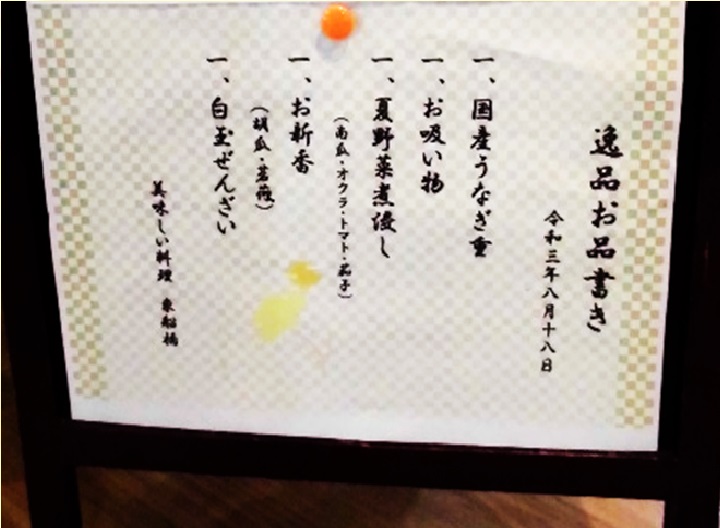 逸品お品書き
令和三年八月十八日
一、国産うなぎ重
一、お吸い物
一、夏野菜煮浸し
（南瓜・オクラ・トマト・茄子）
一、お新香
（胡瓜・蕪）
一、白玉ぜんざい
美味しい料理 東船橋